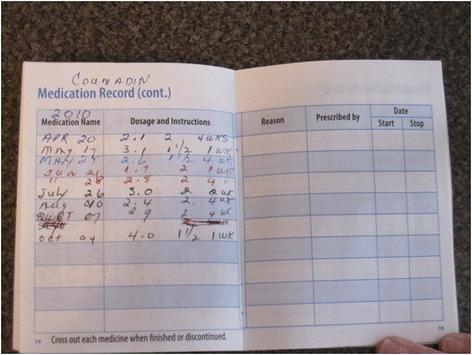 COUMADIN
Medication Record (cont.)
2010
Medication Name Dosage and Instructions Reason Prescribed by Date
Start Stop
APR 20 2.1 2 4 WKS
MAY 17 3.1 1 1/2 1 WK
MAY 25 2.6 1 1/2 4 WK
JUN 21 1.7 2 1 WK
" 28 2.5 2 4 "
July 26 3.0 2 2 WK
Aug 10 2.4 2 4 WK
SEPT 07 2.9 2 4 WK
Oct 04 4.0 1 1/2 1 WK
14 Cross out each medicine when finished or discontinued.